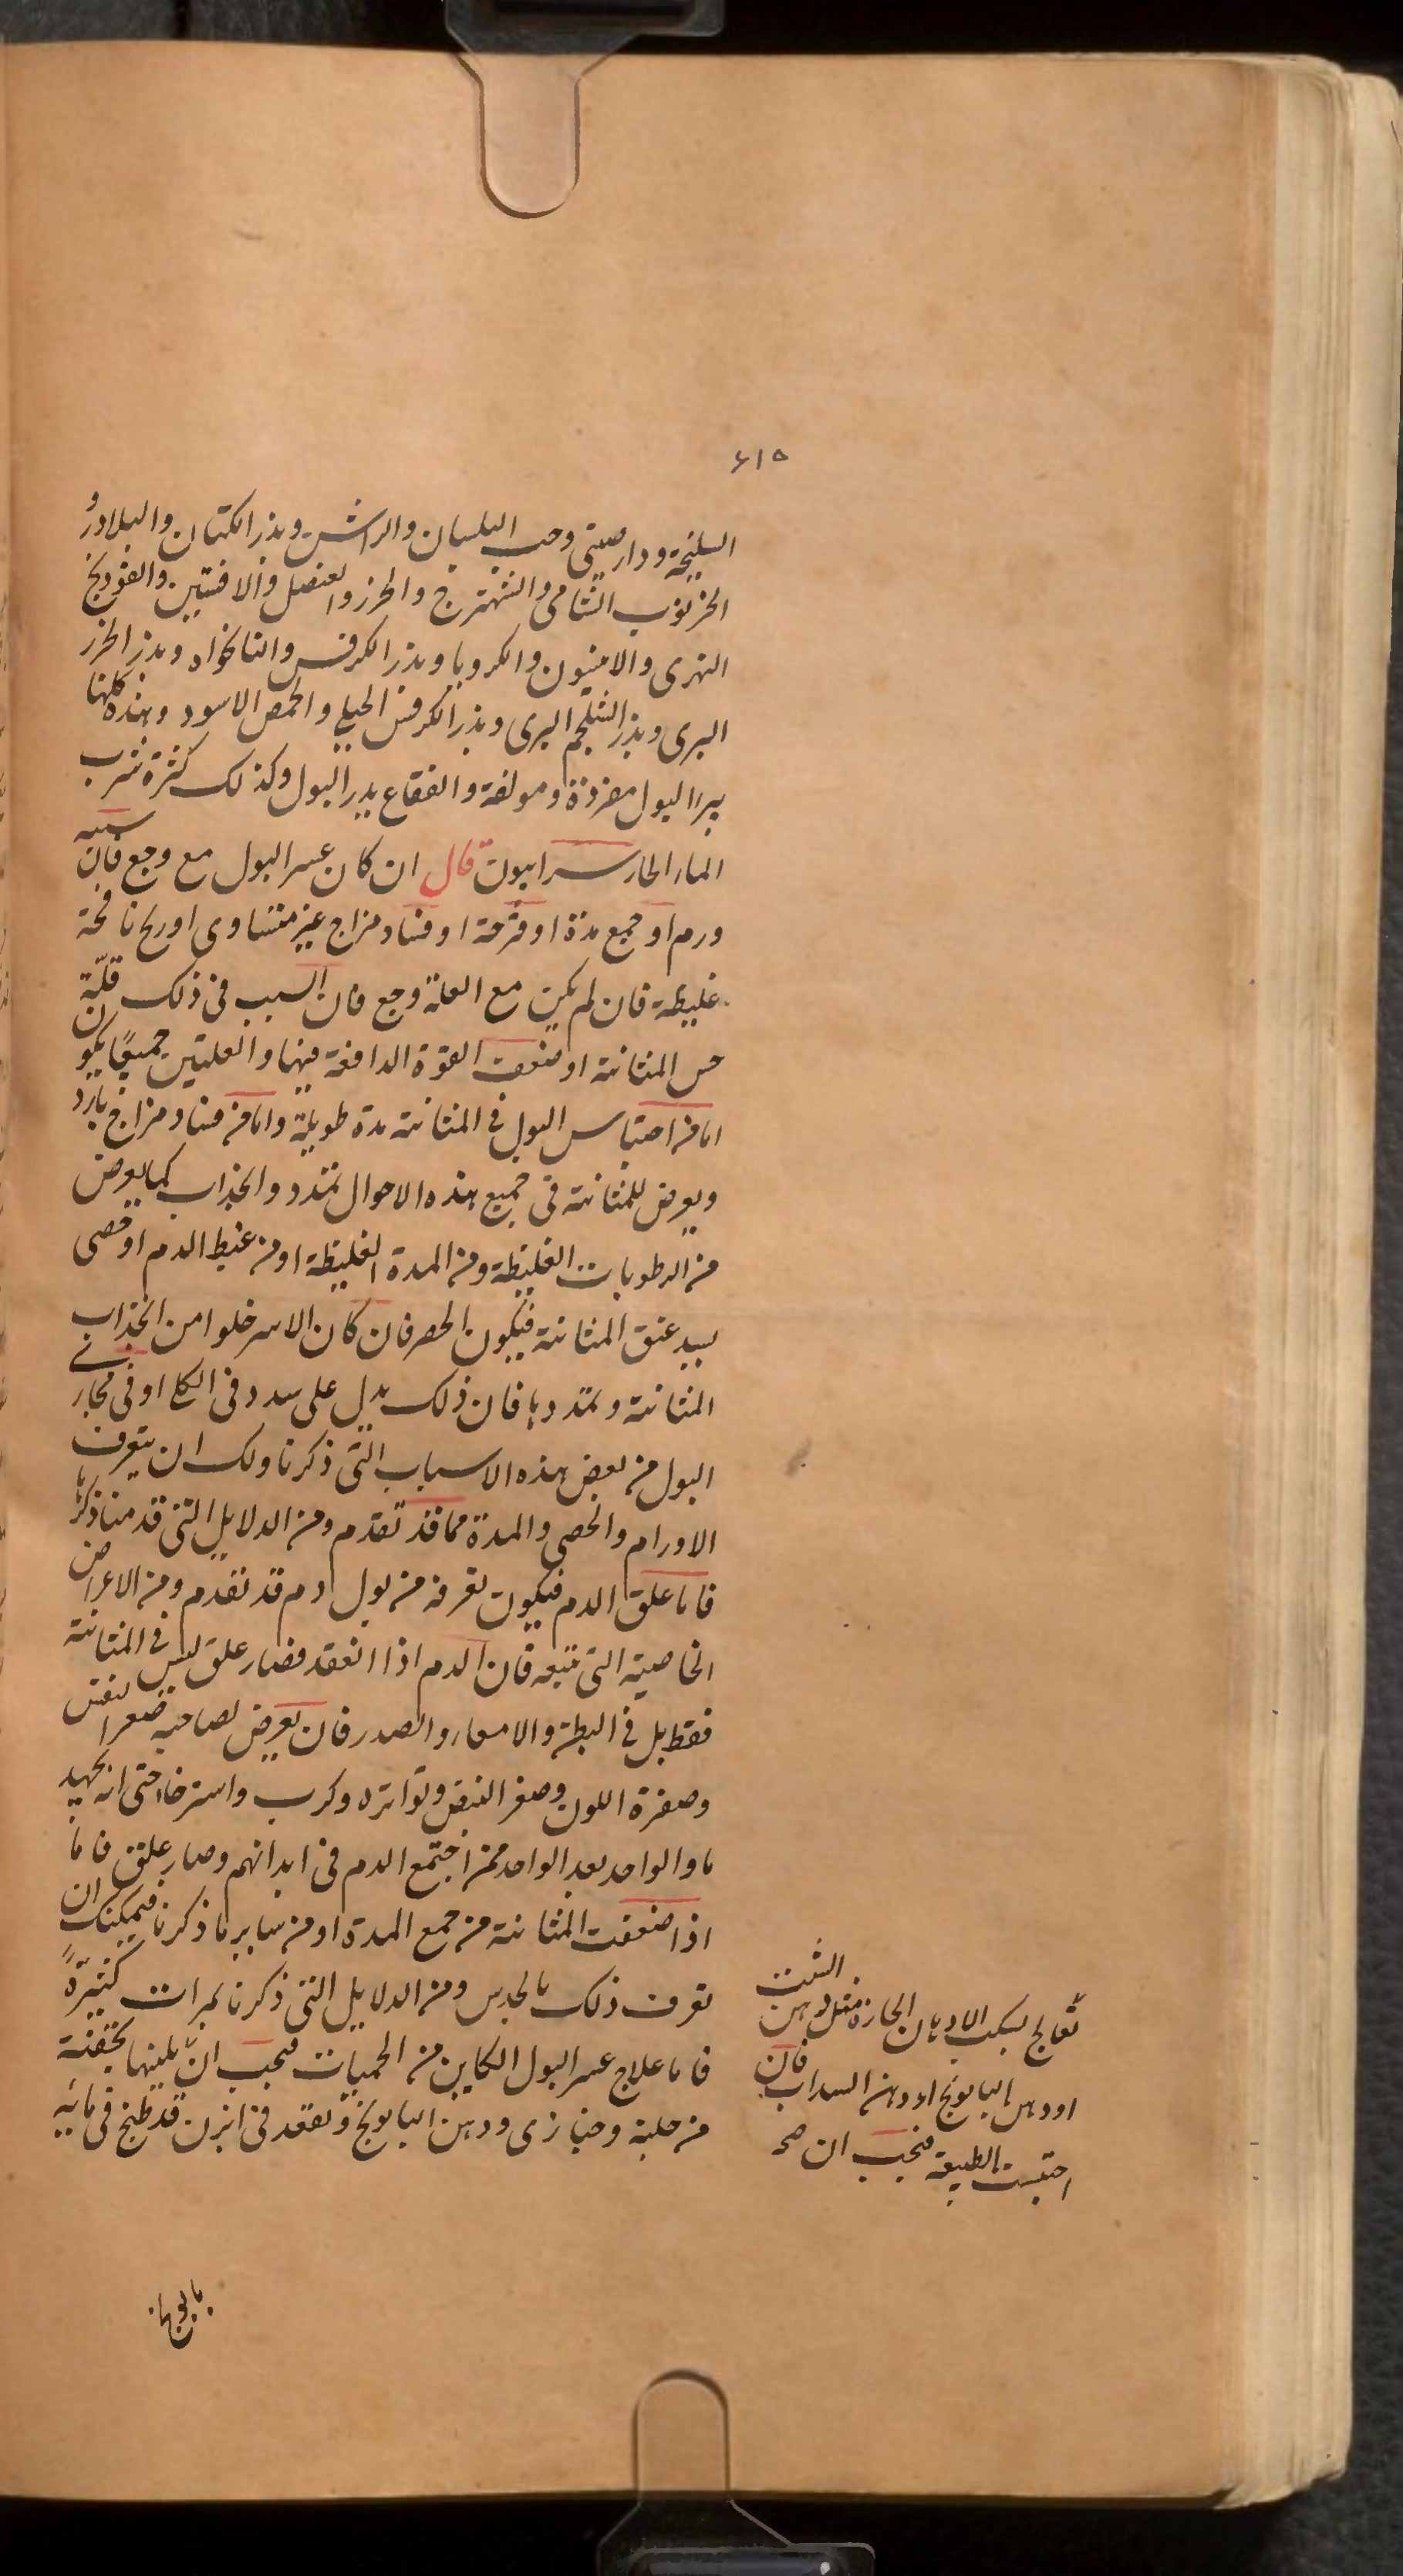 ٦١٥
السليخة ودارصيني وحب البلسان والراسن وبذر الكتان والبلادر و
الخرنوب الشامي والشهترج والخرز والعنصل والافسنتين والفودنج
النهري والانيسون والكرويا وبذر الكرفس والنانخواه وبذر الجزر
البري وبذر الشلجم البري وبذر الكرفس الجبلي والحمص الاسود وهذه كلها
يدر البول مفردة ومولفة والفقاع يدر البول وكذلك كثرة شرب
الماء الحار سرابيون قال ان كان عسر البول مع وجع فان سببه
ورم او جمع مدة او قرحة او فساد مزاج غير متساوي او ريح نافخة
غليظة فان لم يكن مع العلة وجع فان السبب في ذلك قلة
حس المثانة او ضعف القوة الدافعة فيها والعلتين جميعا يكون
اما من احتباس البول في المثانة مدة طويلة واما من فساد مزاج بارد
ويعرض للمثانة في جميع هذه الاحوال تمدد وانجذاب كما يعرض
من الرطوبات الغليظة ومن المدة الغليظة او من غليظ الدم او حصى
يسد عنق المثانة فيكون الحصر فان كان الاسر خلوا من انجذاب
المثانة وتمددها فان ذلك يدل على سدد في الكلى او في مجاري
البول من بعض هذه الاسباب التي ذكرنا ولك ان تتعرف
الاورام والحصى والمدة مما قد تقدم ومن الدلايل التي قدمنا ذكرها
فاما علق الدم فيكون تعرفه من بول دم قد تقدم ومن الاعراض
الخاصية التي تتبعه فان الدم اذا انعقد فصار علق ليس في المثانة
فقط بل في البطن والامعاء والصدر فان يعرض لصاحبه صغر النفس
وصفرة اللون وصغر النبض وتواتره وكرب واسترخاء حتى انه يجهد
ما والواحد بعد الواحد ممن اجتمع الدم في ابدانهم وصار علق فاما
اذا ضعفت المثانة من جمع المدة او من ساير ما ذكرنا فيمكنك ان
تعرف ذلك بالحدس ومن الدلايل التي ذكرنا بمرات كثيرة
فاما علاج عسر البول الكاين من الحميات فيجب ان يلينها بحقنة
من حلبة وخبازى ودهن البابونج ويقعد في ابزن قد طبخ في مائه
تعالج بسكب الادهان الحارة مثل دهن الشبت
او دهن البابونج او دهن السداب فان
احتبست الطبيعة فيجب ان صح
بابونج